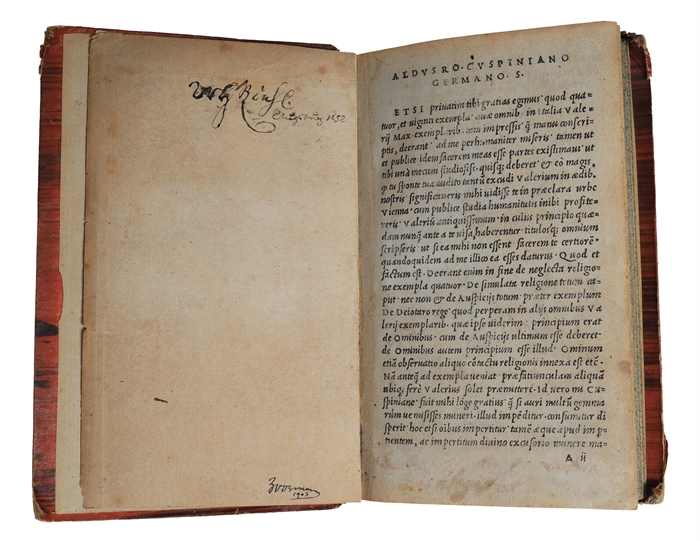 1652
1905
ALDVS RO. CVSPINIANO
GERMANO. S.
ETSI priuatim tibi gratias egimus quod qua-
tuor, et uiginti exempla, quæ omnib. in italia Vale-
rij Max. exemplarib. tum impressis, quàm manu conscri-
ptis, deerant, ad me perhumaniter miseris, tamen ut
et publice idem facerem meas esse partes existimaui, ut
tibi unà mecum studiosi quisq; deberet, & eò magis,
tu sponte tua audito tantũ excudi Valerium in ædib.
nostris significaueris mihi uidisse te in præclara urbe
Vienna, cum publice studia humanitatis inibi profite-
reris Valeriũ antiquissimum, in cuius principio quæ-
dam nunꝗ̃ ante a te uisa, haberentur, titulosq; omnium
scripseris, ut si ea mihi non essent, facerem te certiorẽ,
quandoquidem ad me illico ea esses daturus. Quod et
factum est. Deerant enim in fine de neglecta religio-
ne exempla quatuor. De simulata religione totum ca-
put, nec non & de Auspicijs totum, præter exemplum
De Deiotaro rege, quod perperam in alijs omnibus Va-
lerij exemplarib. quæ ipse uiderim, principium erat
de Ominibus, cum de Auspicijs ultimum esse deberet,
de Ominibus autem principium esse illud. Ominum
etiã obseruatio aliquo cõtactu religionis innexa est etc̃.
Nã anteꝗ̃ ad exempla ueniat, præfatiunculam aliquã
ubiq; ferè Valerius solet præmittere. Id uero mi Cu-
spiniane fuit mihi lõge gratius, ꝗ̃ si auri multũ, gemma
rum ue misisses muneri. illud impẽditur, consumitur di
sperit, hoc etsi oĩbus impertitur, tamẽ æque apud im p̃-
tientem, ac impertitum diuino excusorio munere ma-
A ii